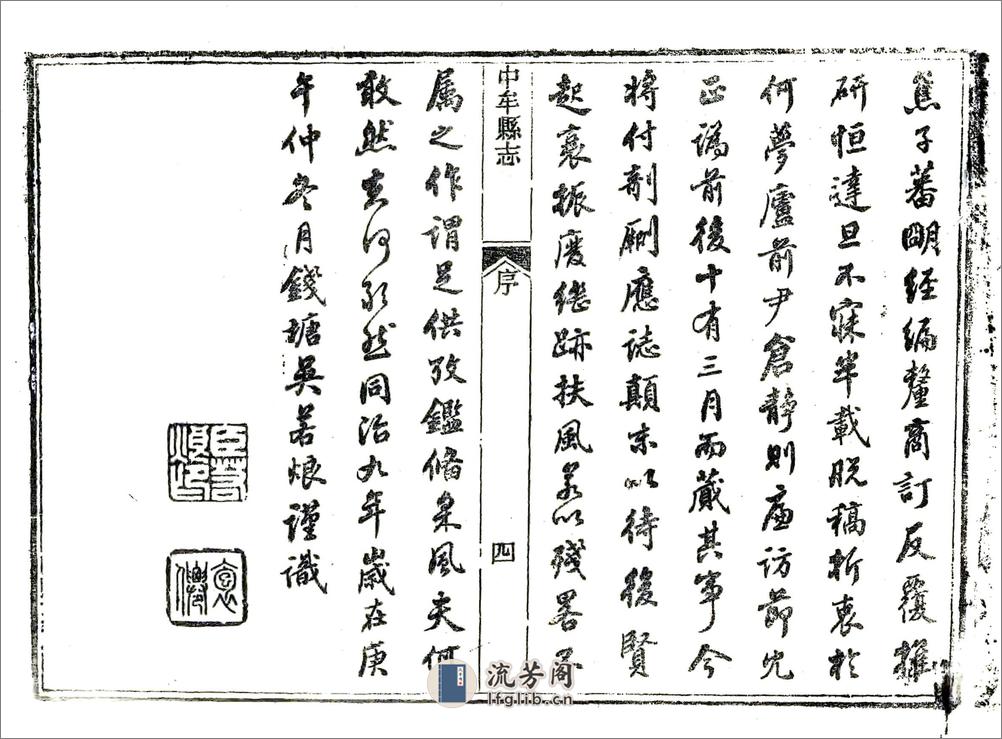 焦子蕃明經編釐商訂反覆推
研恒達旦不寐半載脫稿折衷於
何夢廬前尹倉靜則廉訪節允
正譌前後十有三月而蕆其事今
將付剞劂應誌顛末以待後賢
起衰振廢繼跡扶風若以殘畧不
中牟縣志
序
四
属之作謂足供攷鑑備采風夫何
敢然 同治九年歲在庚
午仲冬月錢塘吳若烺謹識
流芳阁
lfglib.cn